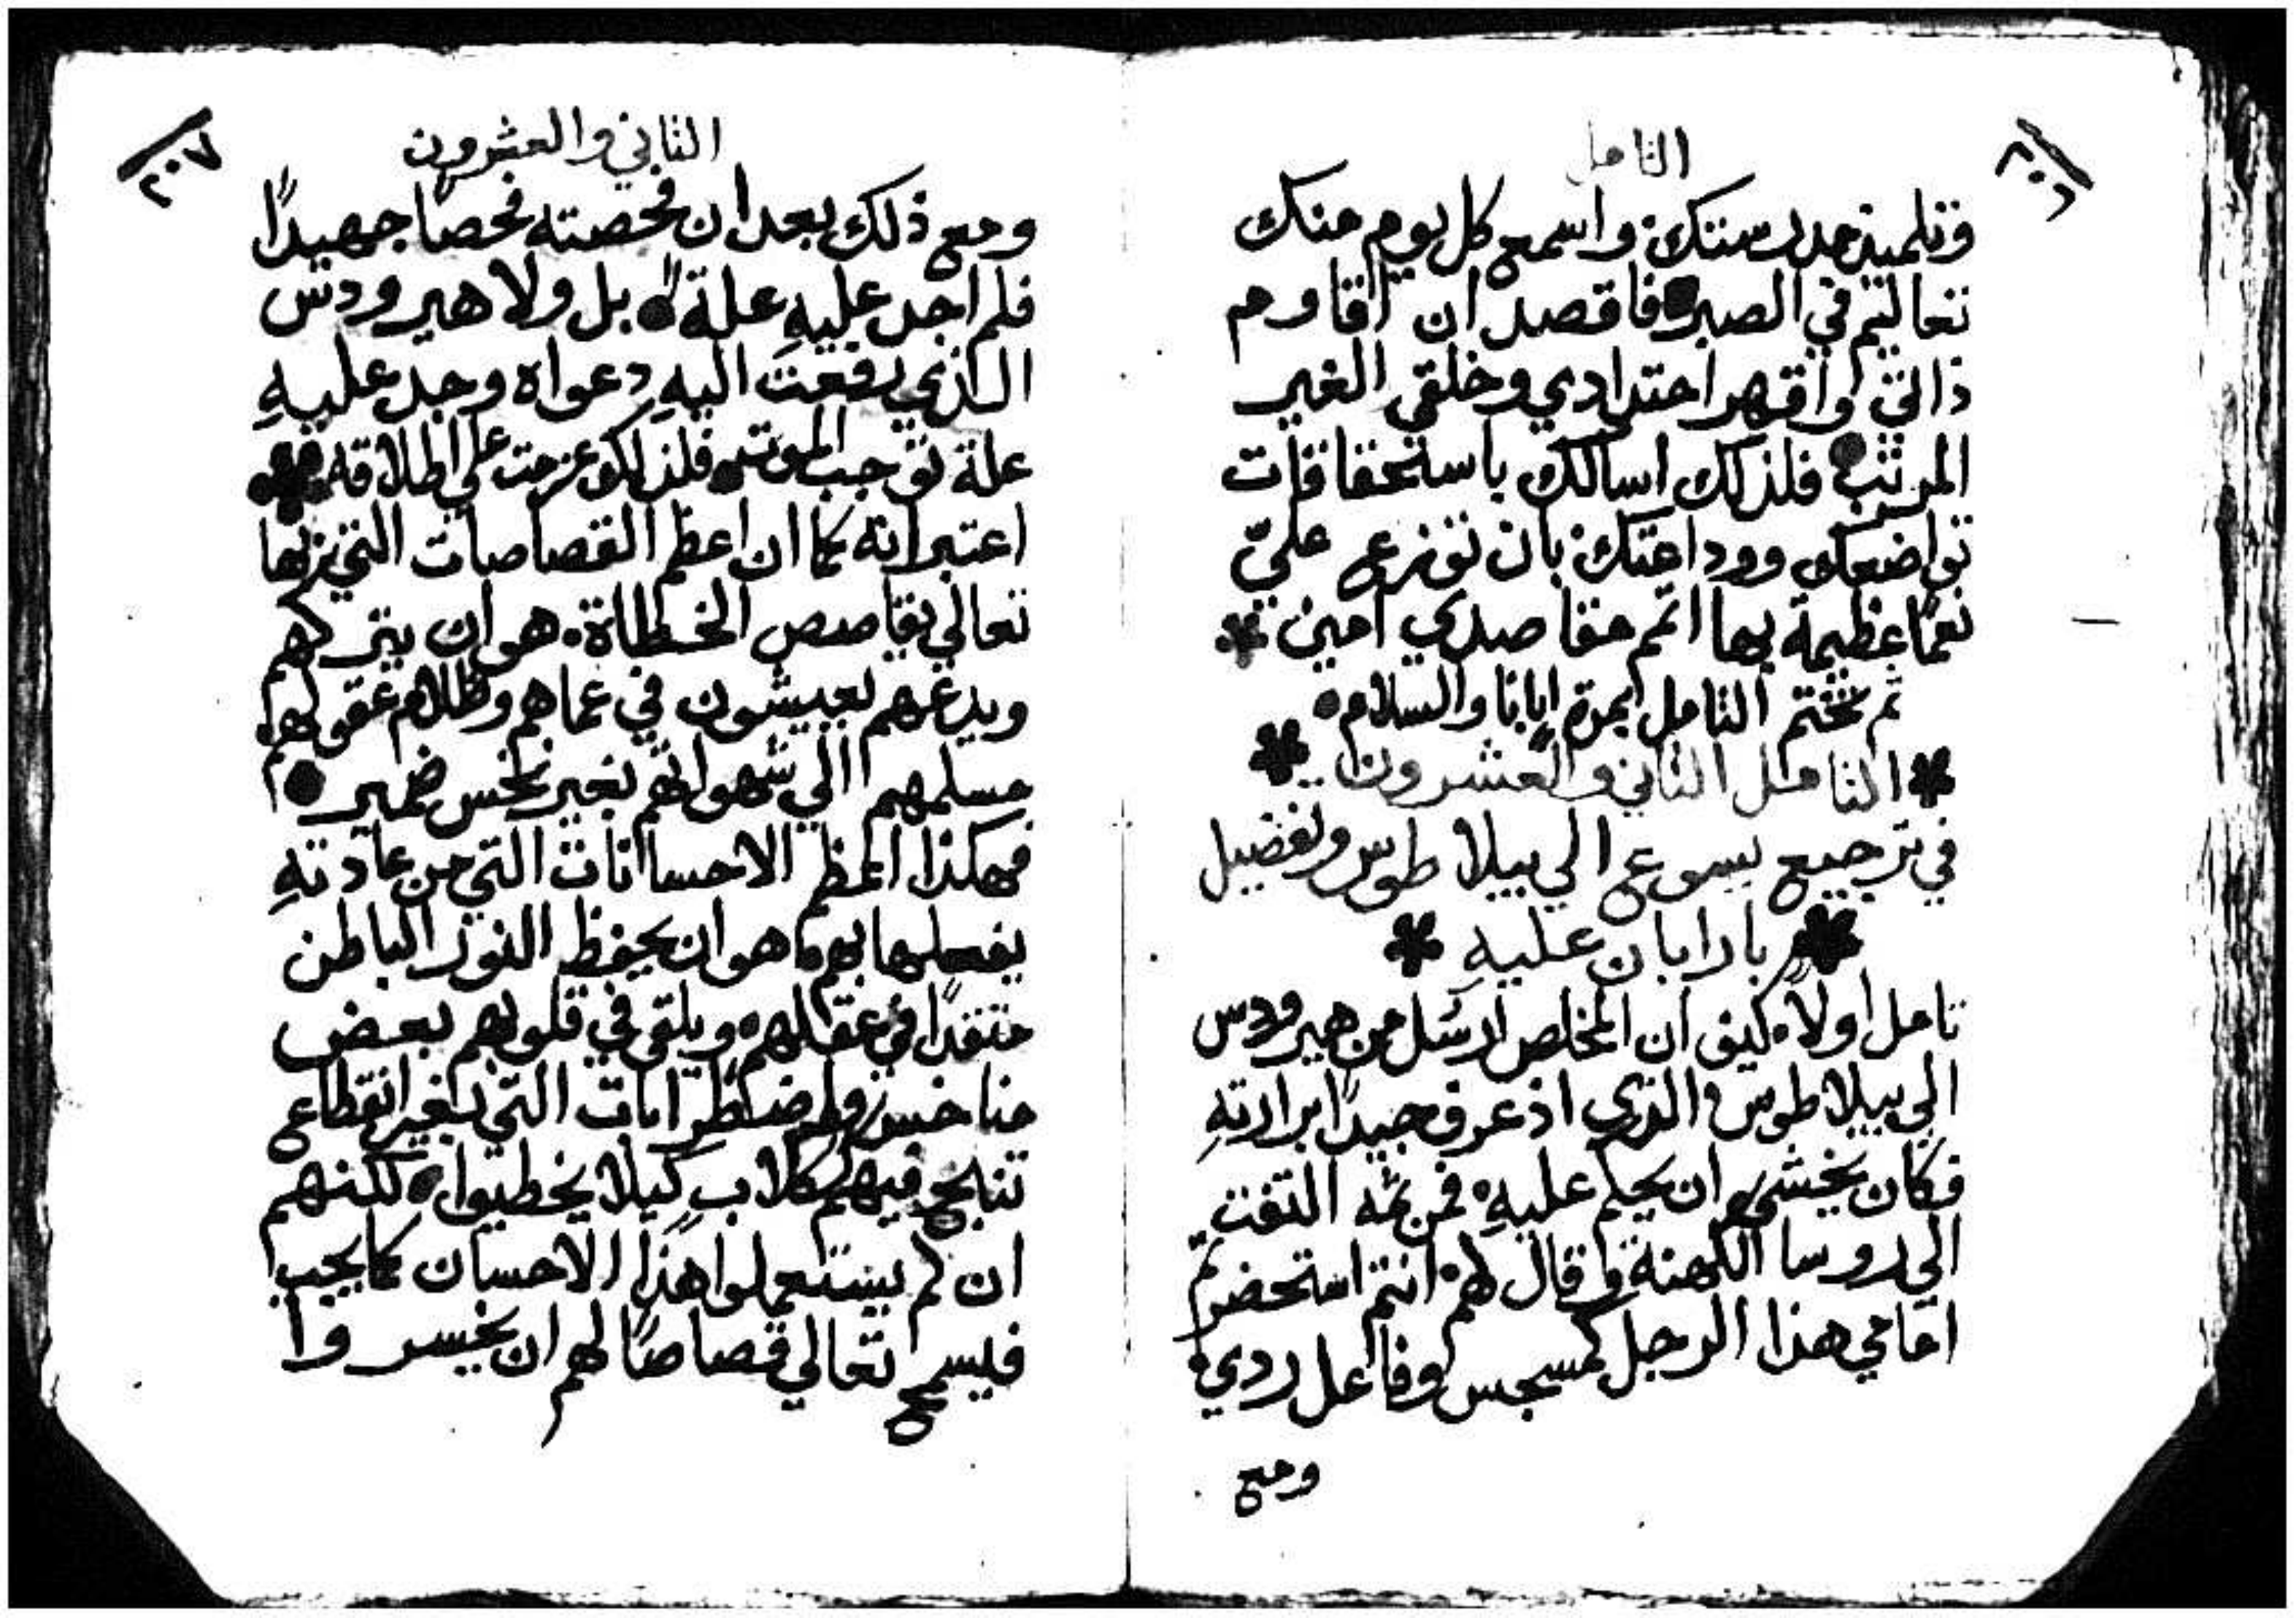 ٢٠٦
التامل
وتلميذ مدرستك، واسمع كل يوم منك
تعاليم في الصبر، فاقصد ان اقاوم
ذاتي واقهر احتدادي وخلقي الغير
المرتب، فلذلك اسالك باستحقاقات
تواضعك ووداعتك، بان توزع عليّ
نعمًا عظيمة بها اتمم مقاصدي امين
ثم تختم التامل بمرة ابانا والسلام
التامل الثاني والعشرون
في ترجيع يسوع الي بيلاطوس وتفضيل
بارابان عليهِ
تامل اولاً، كيف ان المخلص ارسل من هيرودس
الي بيلاطوس، والذي اذ عرف جيدًا برارتهِ
فكان يخشي ان يحكم عليهِ، فمن ثمه التفت
الي روسا الكهنة وقال لهم، انتم استحضرتم
امامي هذا الرجل كمسجس وفاعل ردي،
ومع
٢٠٧
الثاني والعشرون
ومع ذلك بعد ان فحصته فحصًا جهيدًا
فلم اجد عليهِ علةً، بل ولا هيرودس
الذي رفعت اليهِ دعواه وجد عليهِ
علة توجب الموت، فلذلك عزمت علي اطلاقه
اعتبر انه كما ان اعظم القصاصات التي بها
تعالي يقاصص الخطاة، هو ان يتركهم
ويدعهم يعيشون في عماهم وظلام عقولهم
مسلمهم الي شهواتهم بغير نخس ضمير
فهكذا اعظم الاحسانات التي من عادتهِ
يفعلها بهم، هو ان يحفظ النور الباطن
متقدًا في عقلهم، ويلقي في قلوبهم بعض
مناخس واضطرابات التي بغير انقطاع
تنابح فيهم ككلاب كيلا يخطيوا، لكنهم
ان لم يستعملوا هذا الاحسان كما يجب
فيسمح تعالي قصاصًا لهم ان يخسروا